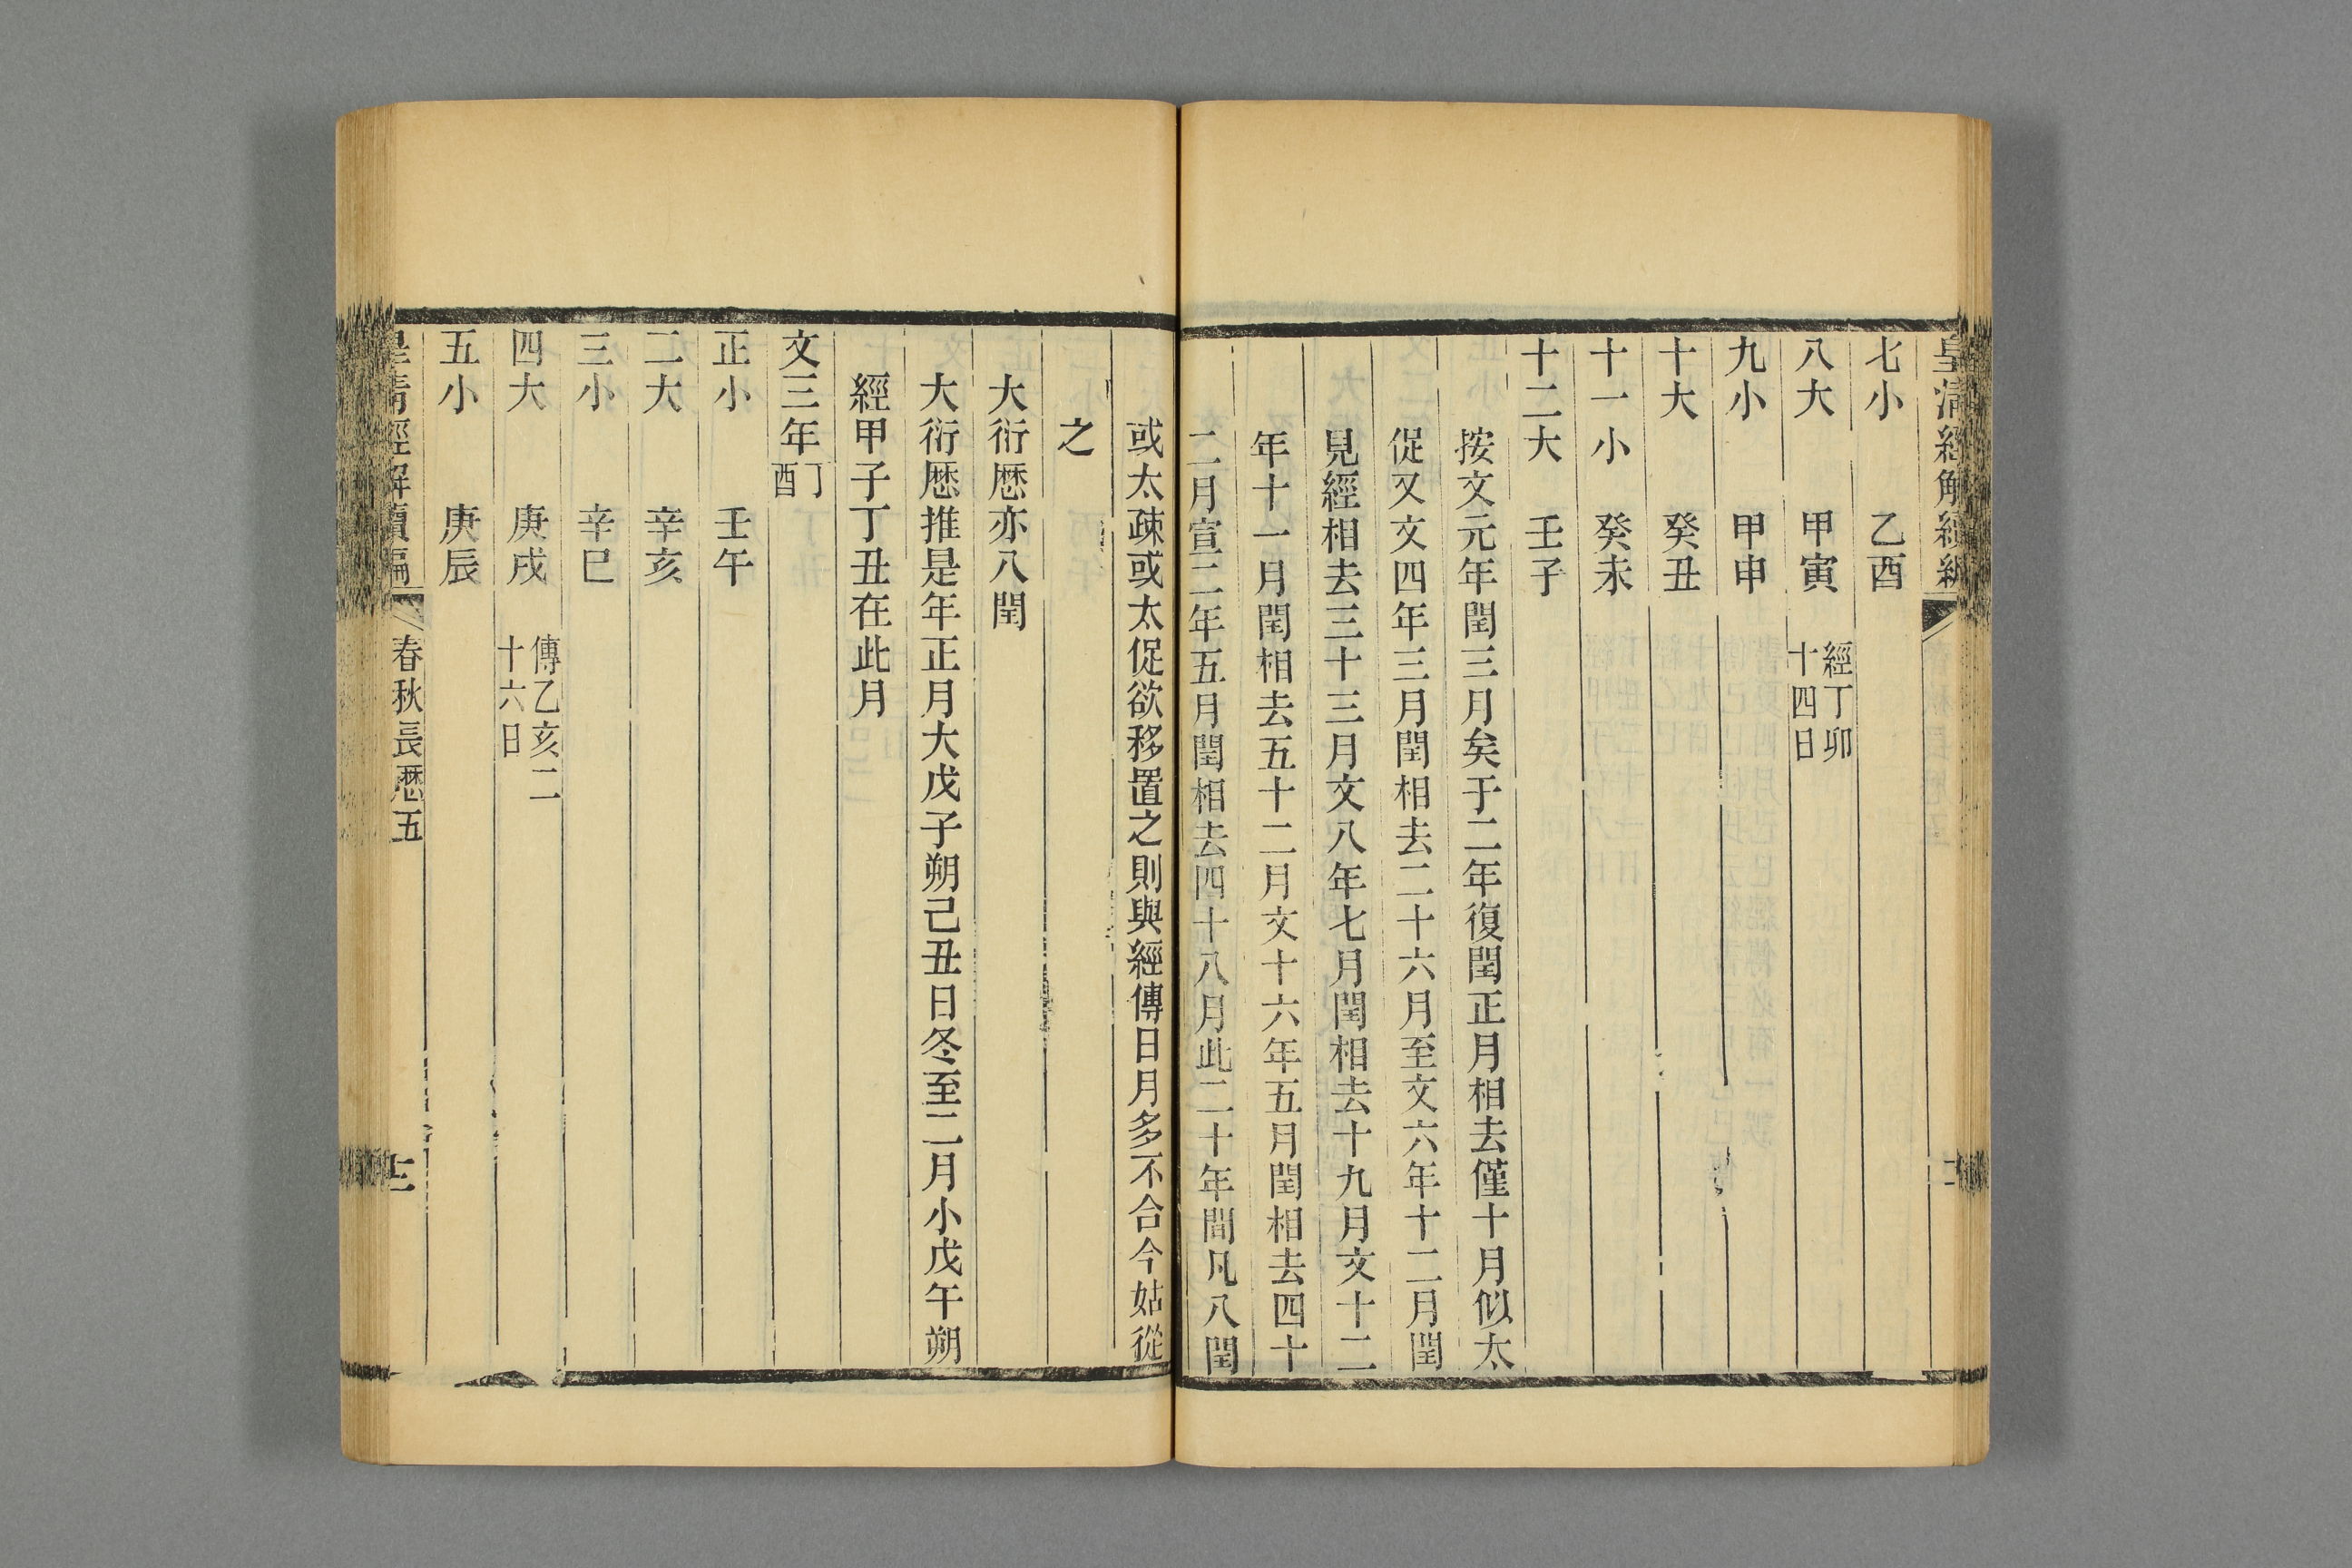 皇清經解續編
七小 乙酉
八大 甲寅 經丁卯十四日
九小 甲申
十大 癸丑
十一小 癸未
十二大 壬子
按文元年閏三月矣于二年復閏正月相去僅十月似太
促又文四年三月閏相去二十六月至文六年十二月閏
見經相去三十三月文八年七月閏相去十九月文十二
年十一月閏相去五十二月文十六年五月閏相去四十
二月宣二年五月閏相去四十八月此二十年間凡八閏
或太疎或太促欲移置之則與經傳日月多不合今姑從
之
大衍厯亦八閏
大衍厯推是年正月大戊子朔己丑日冬至二月小戊午朔
經甲子丁丑在此月
文三年丁酉
正小 壬午
二大 辛亥
三小 辛巳
四大 庚戌 傳乙亥二十六日
五小 庚辰
皇清經解續編 春秋長厯五